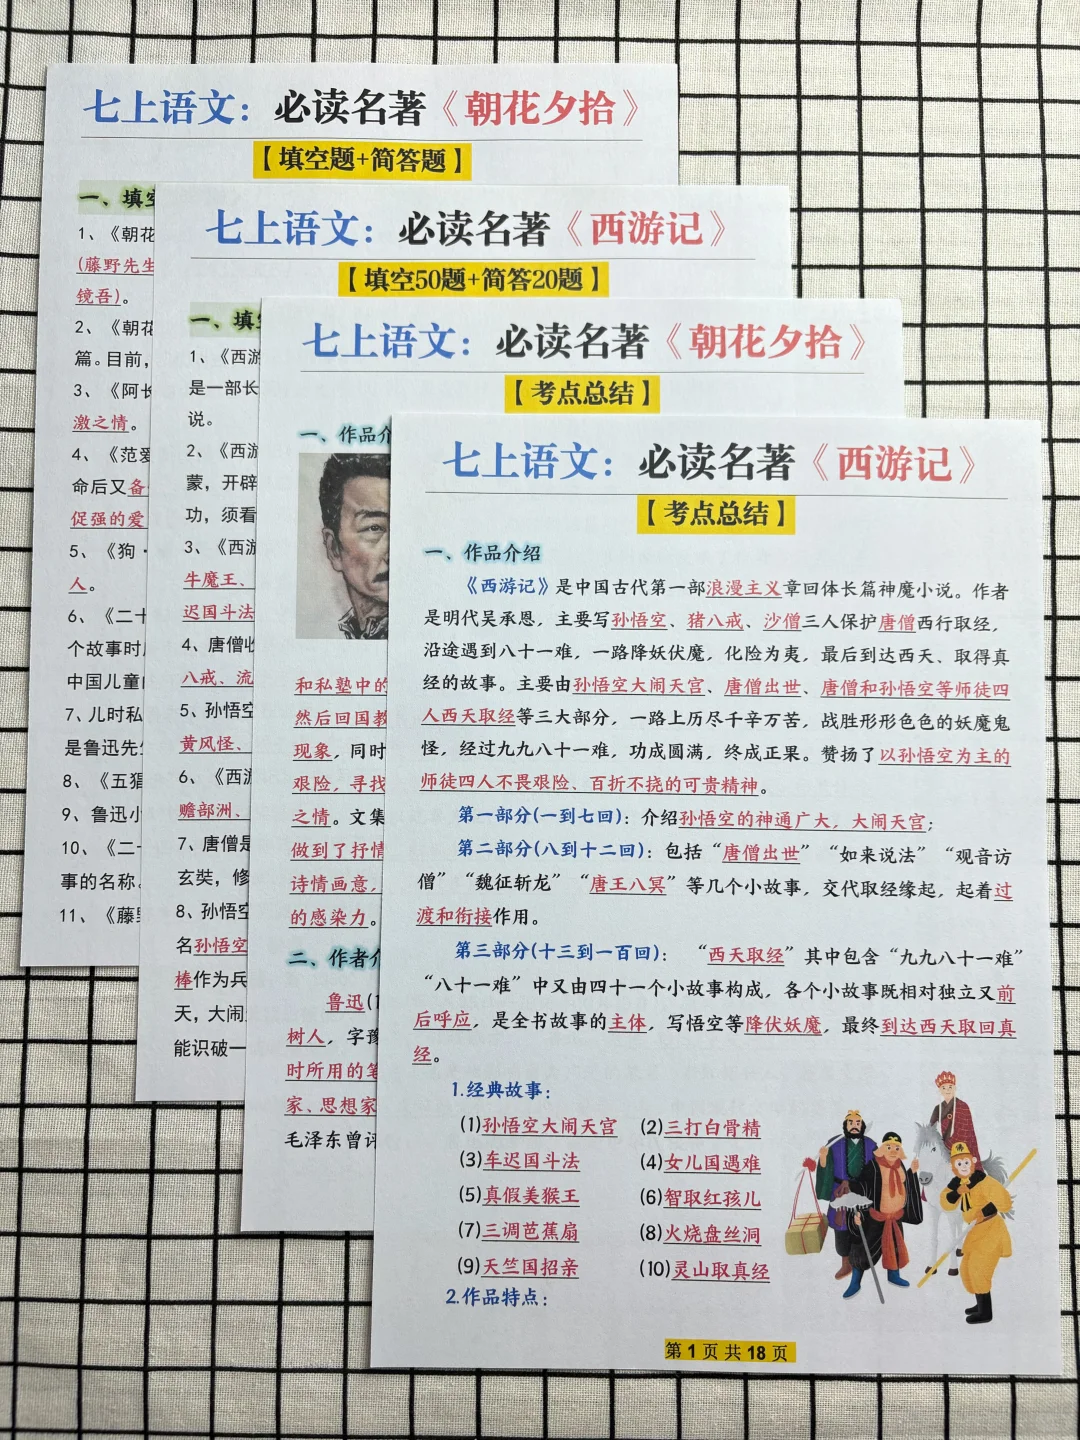 七上语文：必读名著《朝花夕拾》
【填空题+简答题】
一、填空
1、《朝花
(藤野先生
镜吾)。
2、《朝花
篇。目前，
3、《阿长
激之情。
4、《范爱
命后又备
促强的爱
5、《狗·
人。
6、《二十
个故事时
中国儿童
7、儿时私
是鲁迅先
8、《五猖
9、鲁迅小
10、《二十
事的名称。
11、《藤野
七上语文：必读名著《西游记》
【填空50题+简答20题】
一、填空
1、《西游
是一部长
说。
2、《西游
蒙，开辟
功，须看
3、《西游
牛魔王、
迟国斗法
4、唐僧收
八戒、流
5、孙悟空
黄风怪、
6、《西游
赡部洲、
7、唐僧是
玄奘，修
8、孙悟空
名孙悟空
棒作为兵
天，大闹
能识破一
七上语文：必读名著《朝花夕拾》
【考点总结】
一、作品介
和私塾中的
然后回国教
现象，同时
艰险，寻找
之情。文集
做到了抒情
诗情画意，
的感染力。
二、作者介
鲁迅(1
树人，字豫
时所用的笔
家、思想家
毛泽东曾评
七上语文：必读名著《西游记》
【考点总结】
一、作品介绍
《西游记》是中国古代第一部浪漫主义章回体长篇神魔小说。作者
是明代吴承恩，主要写孙悟空、猪八戒、沙僧三人保护唐僧西行取经，
沿途遇到八十一难，一路降妖伏魔，化险为夷，最后到达西天、取得真
经的故事。主要由孙悟空大闹天宫、唐僧出世、唐僧和孙悟空等师徒四
人西天取经等三大部分，一路上历尽千辛万苦，战胜形形色色的妖魔鬼
怪，经过九九八十一难，功成圆满，终成正果。赞扬了以孙悟空为主的
师徒四人不畏艰险、百折不挠的可贵精神。
第一部分(一到七回)：介绍孙悟空的神通广大，大闹天宫；
第二部分(八到十二回)：包括“唐僧出世”“如来说法”“观音访
僧”“魏征斩龙”“唐王八冥”等几个小故事，交代取经缘起，起着过
渡和衔接作用。
第三部分(十三到一百回)：“西天取经”其中包含“九九八十一难”
“八十一难”中又由四十一个小故事构成，各个小故事既相对独立又前
后呼应，是全书故事的主体，写悟空等降伏妖魔，最终到达西天取回真
经。
1.经典故事：
(1)孙悟空大闹天宫 (2)三打白骨精
(3)车迟国斗法 (4)女儿国遇难
(5)真假美猴王 (6)智取红孩儿
(7)三调芭蕉扇 (8)火烧盘丝洞
(9)天竺国招亲 (10)灵山取真经
2.作品特点：
第 1 页 共 18 页